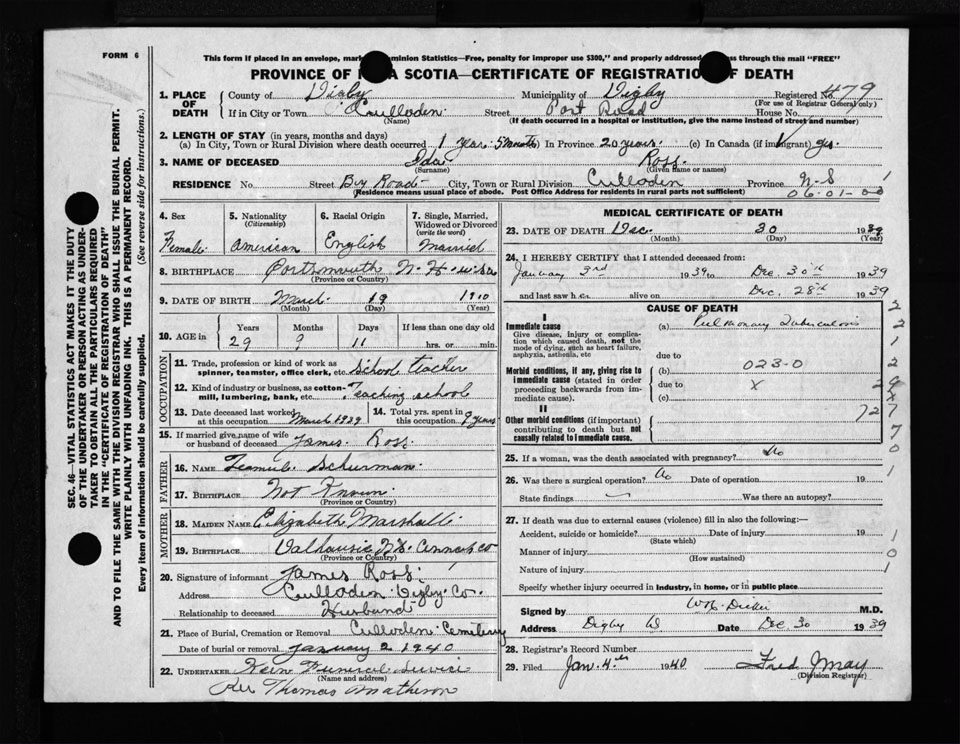 FORM 6
This form if placed in an envelope, mar minion Statistics—Free, penalty for improper use $300," and properly addressed ss through the mail "FREE"
PROVINCE OF A SCOTIA—CERTIFICATE OF REGISTRATION F DEATH
1. PLACE OF DEATH County of Digby Municipality of Digby Registered No. 479
(For use of Registrar General only)
If in City or Town Culloden Street Post Road House No.
(Name) (If death occurred in a hospital or institution, give the name instead of street and number)
2. LENGTH OF STAY (in years, months and days)
(a) In City, Town or Rural Division where death occurred 1 Year 5 month In Province 20 years. (c) In Canada (if immigrant) yrs.
3. NAME OF DECEASED Ida Ross.
(Surname) (Given name or names)
RESIDENCE No. Street By Road City, Town or Rural Division Culloden Province N.S 1
(Residence means usual place of abode. Post Office Address for residents in rural parts not sufficient) 06.01-00
4. Sex 5. Nationality 6. Racial Origin 7. Single, Married, Widowed or Divorced
(Citizenship) (write the word)
Female American English Married
8. BIRTHPLACE Portsmouth N. H. U.S.A
(Province or Country)
9. DATE OF BIRTH March 19 1910
(Month) (Day) (Year)
10. AGE in Years Months Days If less than one day
29 9 11 hrs. or min.
OCCUPATION
11. Trade, profession or kind of work as spinner, teamster, office clerk, etc. School teacher
12. Kind of industry or business, as cotton-mill, lumbering, bank, etc. Teaching school
13. Date deceased last worked at this occupation March 1929 14. Total yrs. spent in this occupation 9 years
15. If married give name of wife or husband of deceased James Ross.
FATHER
16. NAME Schurman.
17. BIRTHPLACE Not Known
(Province or Country)
MOTHER
18. MAIDEN NAME Elizabeth Marshall
19. BIRTHPLACE Dalhousie N.S. Co
(Province or Country)
20. Signature of informant James Ross.
Address Culloden Digby Co.
Relationship to deceased Husband
21. Place of Burial, Cremation or Removal Culloden Cemetery
Date of burial or removal January 2 1940
22. UNDERTAKER Funeral Service
(Name and address)
Per Thomas Matheson
MEDICAL CERTIFICATE OF DEATH
23. DATE OF DEATH Dec. 30 1939
(Month) (Day) (Year)
24. I HEREBY CERTIFY that I attended deceased from:
January 3rd 1939 to Dec 30th 1939
and last saw h er alive on Dec. 28th 1939
CAUSE OF DEATH
I
Immediate cause (a) Pulmonary Tuberculosis
Give disease, injury or complication which caused death, not the mode of dying, such as heart failure, asphyxia, asthenia, etc
due to
Morbid conditions, if any, giving rise to immediate cause (stated in order proceeding backwards from immediate cause). (b) 023-0
due to X
(c)
II
Other morbid conditions (if important) contributing to death but not causally related to immediate cause.
25. If a woman, was the death associated with pregnancy? No
26. Was there a surgical operation? No Date of operation 19
State findings — Was there an autopsy?
27. If death was due to external causes (violence) fill in also the following:—
Accident, suicide or homicide? Date of injury 19
(State which)
Manner of injury
(How sustained)
Nature of injury
Specify whether injury occurred in Industry, in home, or in public place
Signed by M.D.
Address Digby Date Dec 30 1939
28. Registrar's Record Number
29. Filed Jan. 4th 1940 Fred May
(Division Registrar)
SEC. 46—VITAL STATISTICS ACT MAKES IT THE DUTY
OF THE UNDERTAKER OR PERSON ACTING AS UNDER-
TAKER TO OBTAIN ALL THE PARTICULARS REQUIRED
IN THE "CERTIFICATE OF REGISTRATION OF DEATH"
AND TO FILE THE SAME WITH THE DIVISION REGISTRAR WHO SHALL ISSUE THE BURIAL PERMIT.
WRITE PLAINLY WITH UNFADING INK. THIS IS A PERMANENT RECORD.
Every item of information should be carefully supplied. (See reverse side for instructions.)